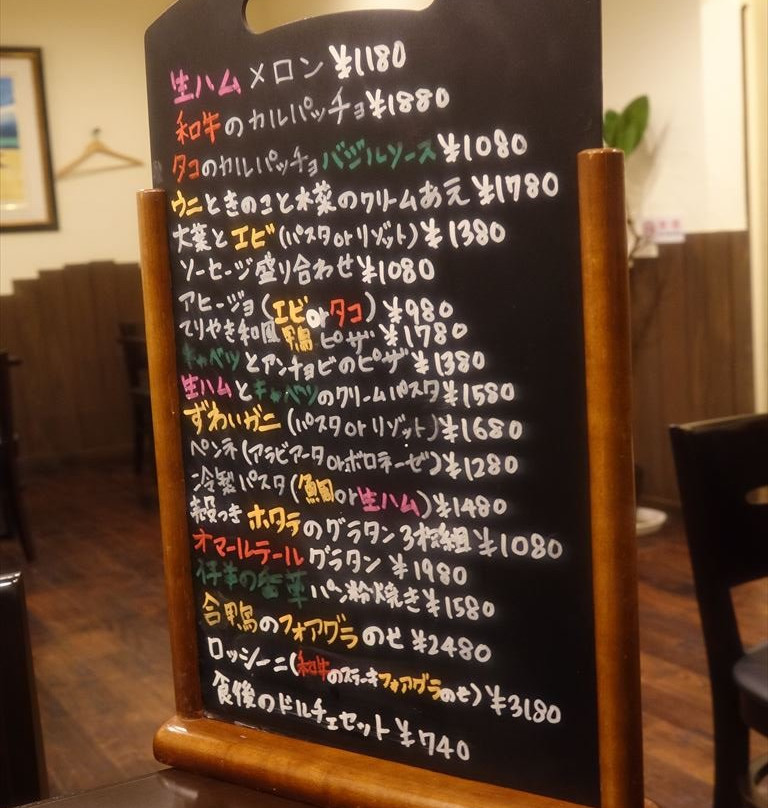 生ハム×ロン ¥1180
和牛のカルパッチョ ¥1880
タコのカルパッチョバジルソース ¥1080
ウニときのこと水菜のクリームあえ ¥1780
大葉とエビ(パスタorリゾット) ¥1380
ソーセージ盛り合わせ ¥1080
アヒージョ(エビorタコ) ¥980
てりやき和風鴨ピザ ¥1780
キャベツとアンチョビのピザ ¥1380
生ハムとキャベツのクリームパスタ ¥1580
ずわいガニ(パスタorリゾット) ¥1680
ペンネ(アラビアータorボロネーゼ) ¥1280
冷製パスタ(鯛or生ハム) ¥1480
殻つきホタテのグラタン3枚組 ¥1080
オマールテールグラタン ¥1980
仔羊の香草パン粉焼き ¥1580
合鴨のフォアグラのせ ¥2480
ロッシーニ(和牛のステーキフォアグラのせ) ¥3180
食後のドルチェセット ¥740